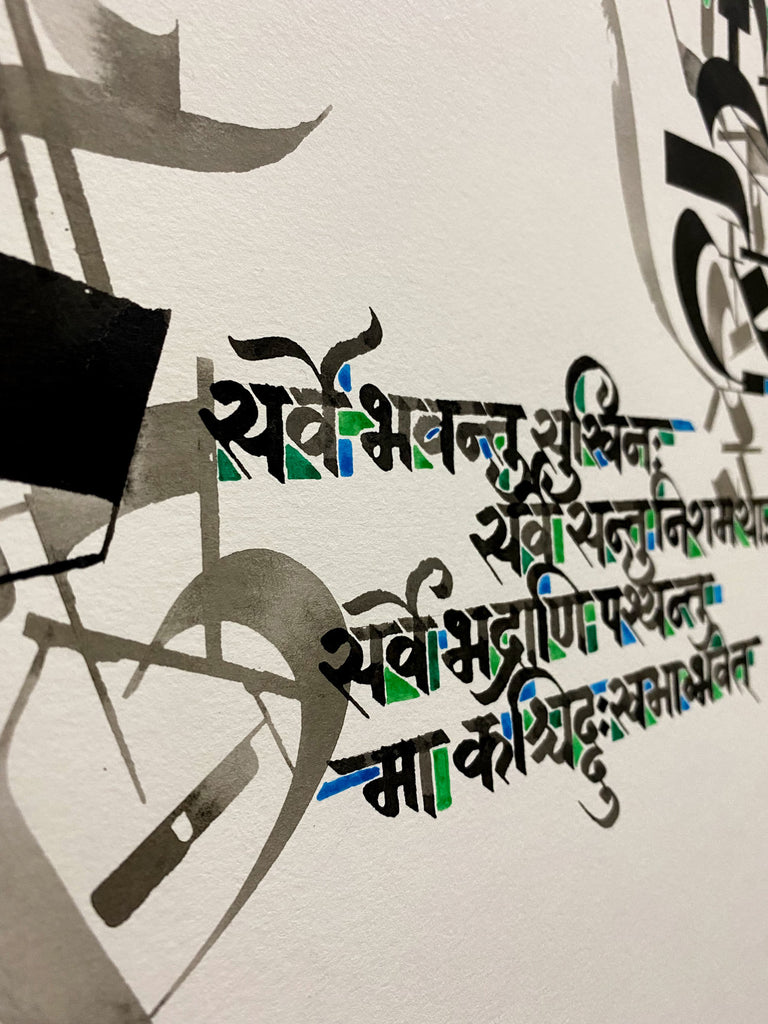 सर्वे भवन्तु सुखिनः
सर्वे सन्तु निरामया
सर्वे भद्राणि पश्यन्तु
मा कश्चिद्दुःखभाग्भवेत्